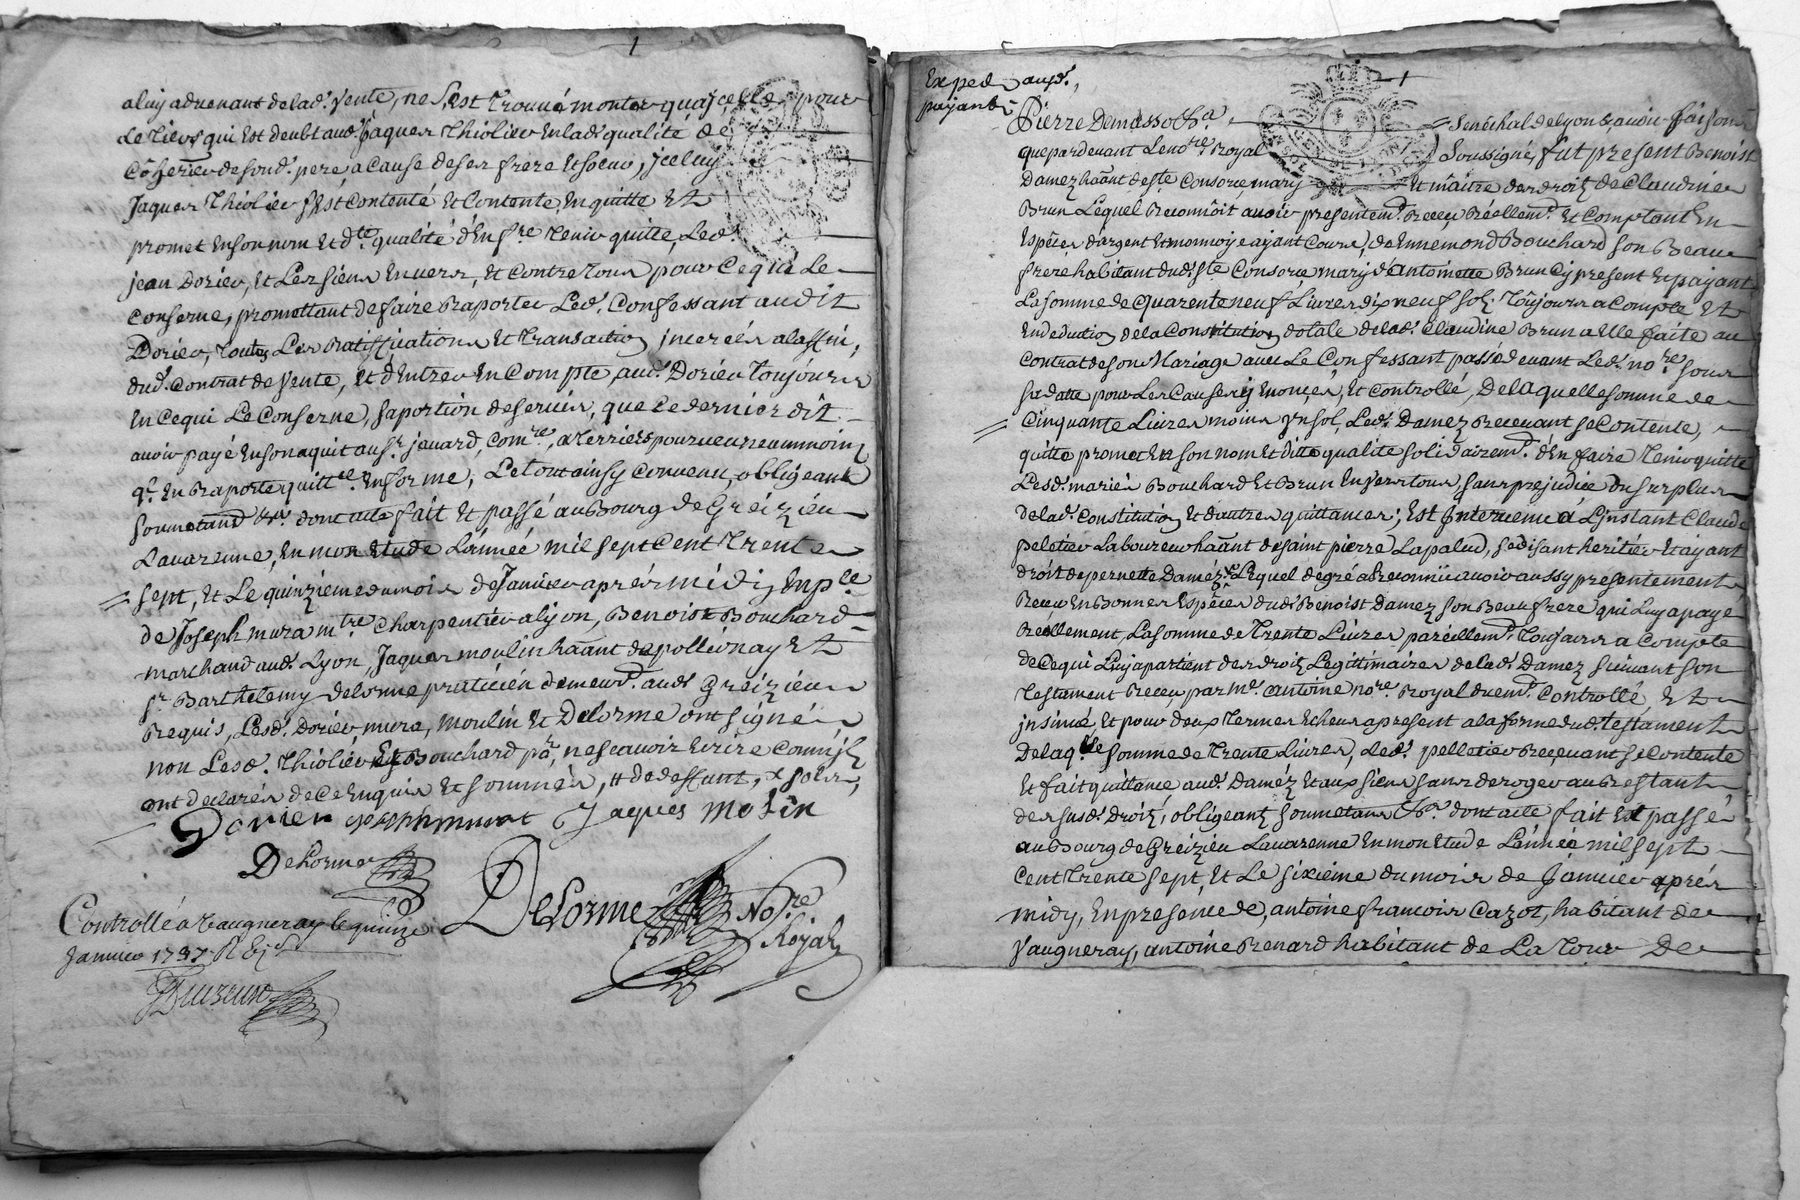 1
a luy advenant de lad. vente, ne s'est trouvé monter qua jcelle pour
Le tiers qui est deubt aud. Jaques Thiolier en lad. qualité de
Coherier de sond. pere, a cause de ses frere et soeur, jceluy
Jaques Thiolier s'est contenté et contente, en quitte et
promet en son nom et dte. qualité d'en fre. tenir quitte, Led.
jean Dorier, et Les siens envers, et contre tous pour ce qui le
conserne, promettant de faire raporter Led. Confessant audit
Dorier, toutes Les ratiffications et transaction jncerées a la fin,
dud. contrat de vente, et d'entrer en compte, aud. Dorier toujours
En ce qui Le conserne, sa portion de servis, que ce dernier dit
avoir payé en son aquit au sr. jenard, comre. a terriers pourveu neammoins
q'l en raporte quittce. en forme, Le tout ainsy convenu, obligeant
soumetant &a. dont acte fait et passé au Bourg de Greizieu
Lavarenne, en mon Etude L'année mil sept cent trente
sept, et Le quinzieme du mois de Janvier aprés midi, En pce.
de Joseph mura mtre. charpentier a lyon, Benoist Bouchard
marchand aud. Lyon, Jaques moulin haant. de pollionay et
sr. Barthelemy delorme praticien demeurt. aud. Greizieu
Requis, Lesd. Dorier, mura, moulin et Delorme ont signé
non Lesd. Thiolier et Bouchard pr. ne scavoir Ecrire comm'jls
ont declarés de ce enquis et sommés, # de deffunt, x solz,
Dorien Jaques molin
Delorme
Delorme Nore. Royal
Controllé a Vaugneray le quinze
Janvier 1737 R
1
Exped. aud.
payant
Pierre Demasso &a Senechal de Lyon & avoir faisons
que pardevant Le nore. Royal soussigné, fut present Benoist
Damez haant. de ste Consorce mary et maitre des droitz de Claudine
Brun Lequel Reconnoit avoir presentemt. Receu Réellemt. et comptant En
Espéces d'argent et monnoye ayant cours, de Ennemond Bouchard son Beau
frere habitant dud. ste Consorce mary d'antoinette Brun cy present et payant
La somme de quarente neuf Livres dix neuf solz. toujours a compte et
En deduction de la Constitution dotale de lad. Claudine Brun a elle faite au
contrat de son Mariage avec Le Confessant passé devant Led. nore. sous
sa datte pour Les causes y enoncés, et controllé, De laquelle somme de
Cinquante Livres moins un sol, Led. Damez Recevant se contente,
quitte promet en son nom et ditte qualité solidairemt. d'en faire tenir quitte
Lesd. mariés Bouchard et Brun envers tous, sans prejudice du surplus
de lad. constitution et d'autres quittances; Est Intervenu á L'jnstant Claude
peletier Laboureur haant. de saint pierre Lapalud, se disant heritier et ayant
droit de pernette Daméz Lequel de gré a Reconnu avoir aussy presentement
Receu en Bonnes Espéces dud. Benoist Damez son Beau frere qui Luy a payé
Reellement La somme de trente Livres pareillemt. toujours a compte
de ce qui Luy apartient des droitz Legitimaires de lad. Damez suivant son
testament Receu, par me. antoine nore. Royal duemt. controllé, et
jnsinué, et pour deux termes Echeus a present a la forme dud. testament
De laqlle. somme de trente Livres, Led. pelletier Recevant se contente
Et fait quittance aud. Daméz et aux siens sans deroger au Restant
des susd. droitz, obligeant soumetans &a. dont acte fait et passé
au Bourg de Greizieu Lavarenne en mon Etude L'année mil sept
cent trente sept, et Le sixiéme du mois de Janvier aprés
midy, En presence de, antoine francois Cazot, habitant de
Vaugneray, antoine Renard habitant de La Tour De